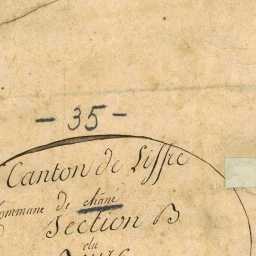 - 35 -
Canton de Liffré
Commune de
Section B
du